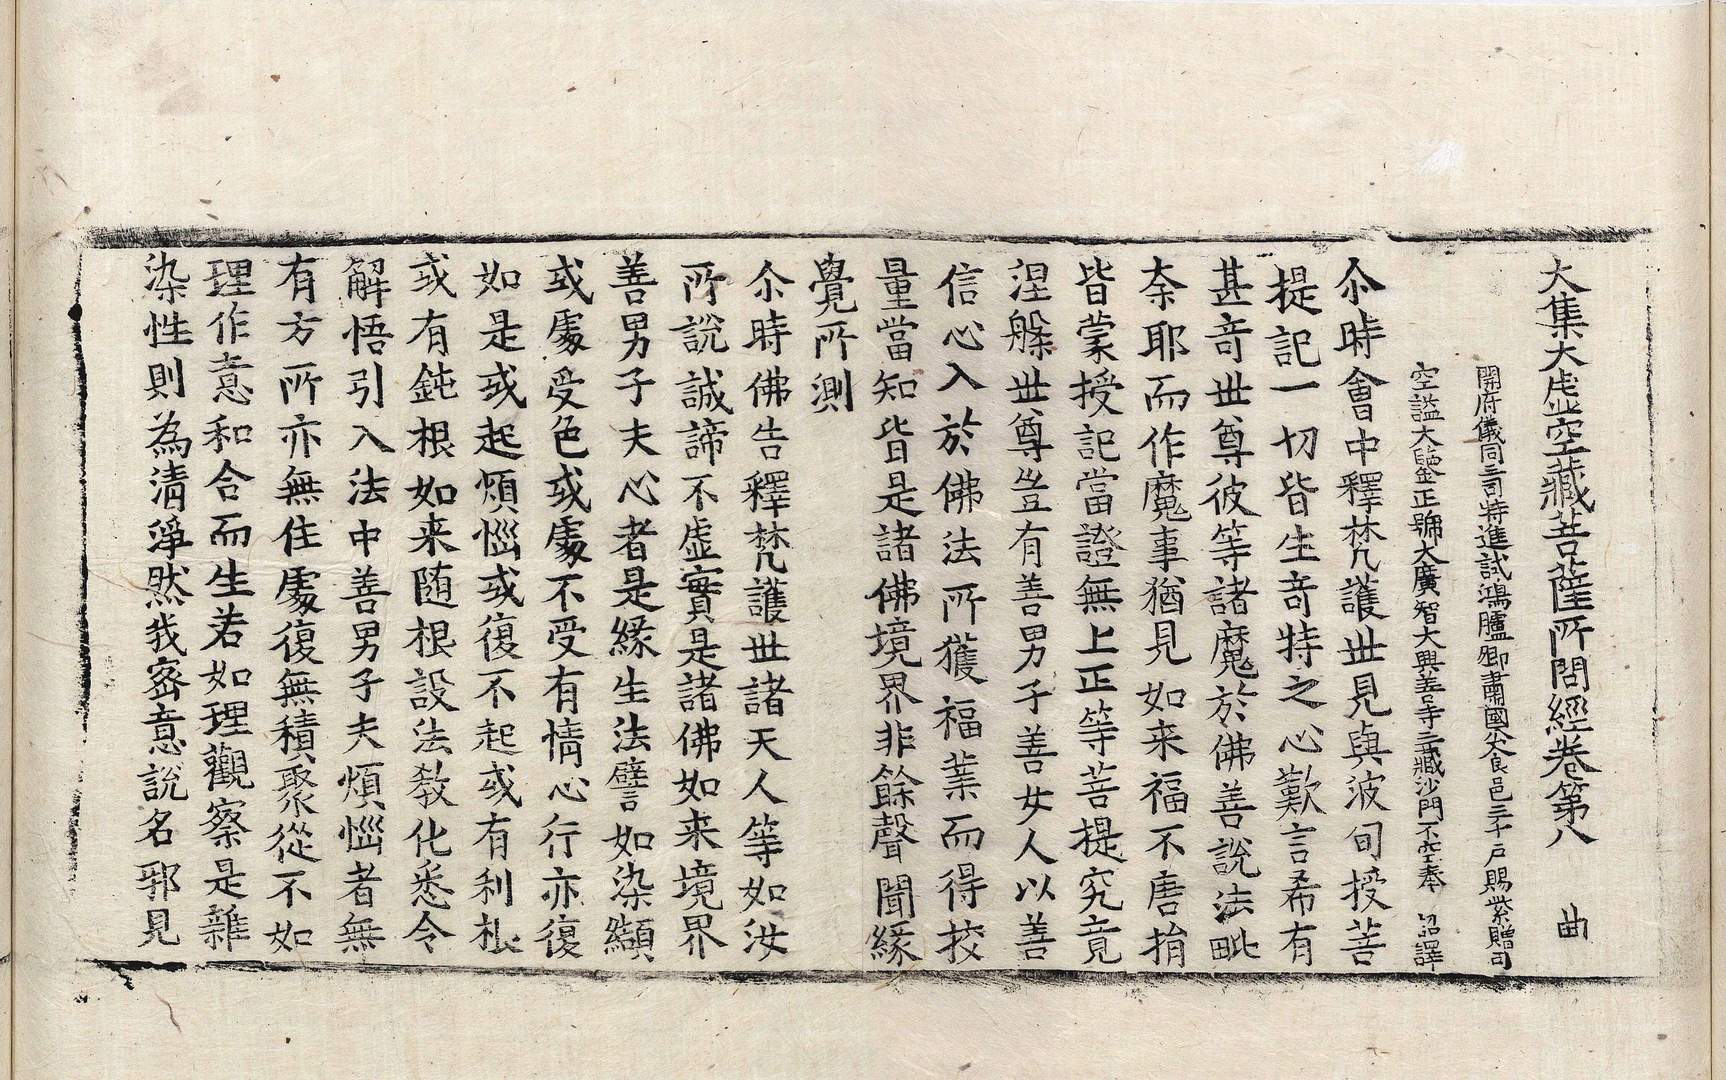 大集大虛空藏菩薩所問經卷第八　曲
開府儀同三司特進試鴻臚卿肅國公食邑三千戶賜紫贈司
空謚大鑒正號大廣智大興善寺三藏沙門不空奉　詔譯
尒時會中釋梵護世見與波旬授菩
提記一切皆生竒特之心歎言希有
甚竒世尊彼等諸魔於佛善說法毗
柰耶而作魔事猶見如来福不唐捐
皆蒙授記當證無上正等菩提究竟
涅槃世尊豈有善男子善女人以善
信心入於佛法所獲福業而得挍
量當知皆是諸佛境界非餘聲聞緣
覺所測
尒時佛告釋梵護世諸天人等如汝
所說誠諦不虛實是諸佛如来境界
善男子夫心者是緣生法譬如染纈
或處受色或處不受有情心行亦復
如是或起煩惱或復不起或有利根
或有鈍根如来随根設法教化悉令
解悟引入法中善男子夫煩惱者無
有方所亦無住處復無積聚從不如
理作意和合而生若如理觀察是雜
染性則為清淨然我密意說名邪見